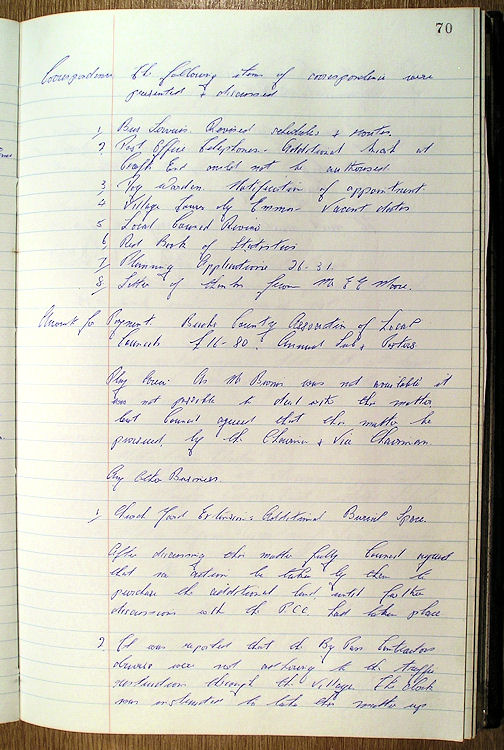 70
Correspondence The following items of correspondence were
presented & discussed
1 Bus Services. Revised schedules & routes.
2. Post Office Telephones. Additional kiosk at
End could not be authorised
3 Dog Warden. Notification of appointment
4 Village Survey Emma Vacant dates
5 Local Council Review
6 Red Book of Statistics
7 Planning Applications 26-31.
8 Letter of thanks from Mr E G Moore.
Accounts for Payment. Bucks County Association of Local
Councils £16-80. Annual Sub, Posters
Play Area. As Mr Brown was not available it
was not possible to deal with this matter
but Council agreed that this matter be
pursued by the Chairman & Vice Chairman.
Any Other Business.
1 Church Yard Extension: Additional Burial Space.
After discussing this matter fully Council agreed
that no action be taken by them to
purchase the additional land until further
discussions with the P.C.C. had taken place
2 It was reported that the By Pass Contractors
drivers were not adhering to the traffic
restrictions through the village. The Clerk
was instructed to take this matter up